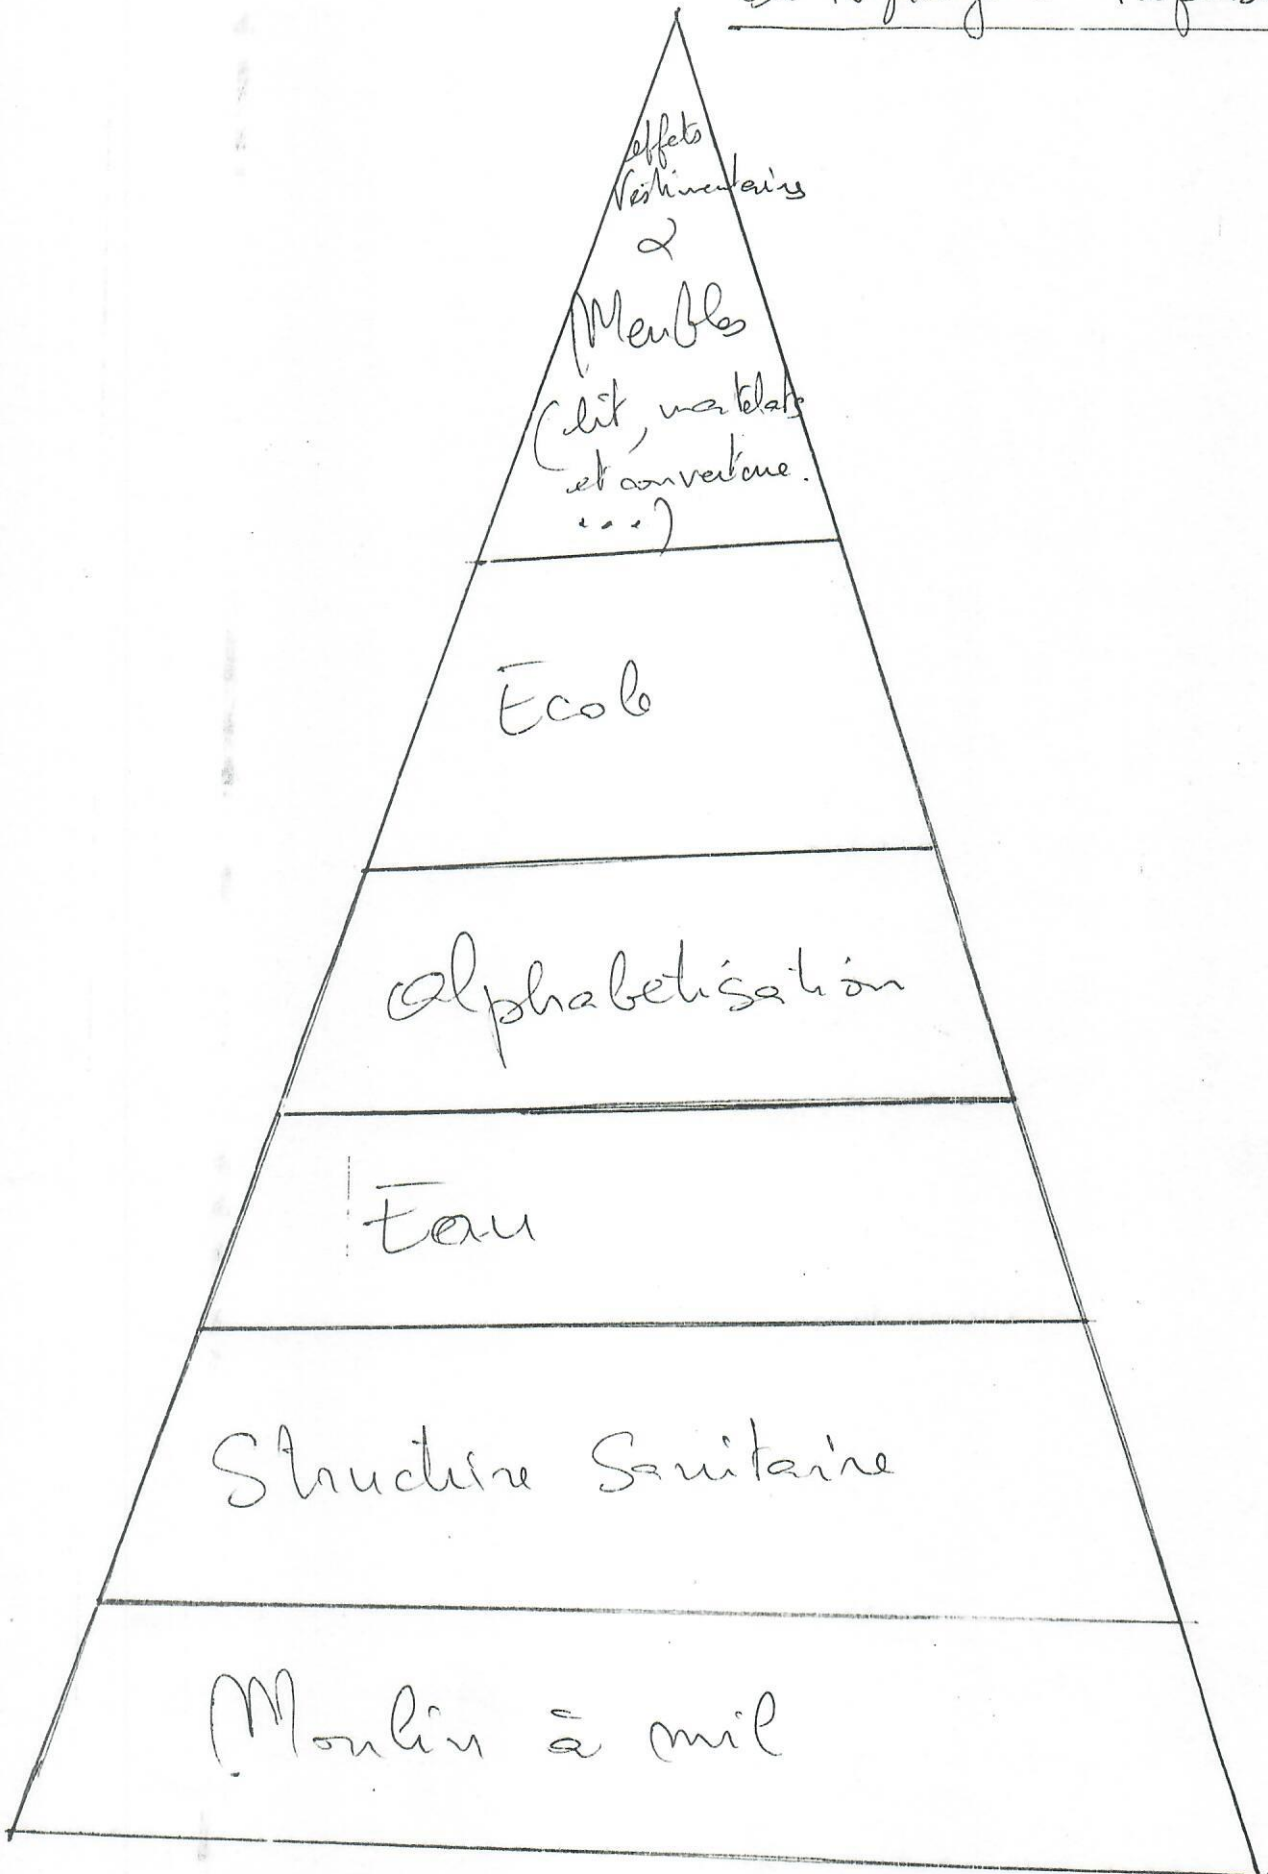 effets
vestimentaires
&
Meubles
(lit, matelats
et couverture.
...)
Ecole
Alphabétisation
Eau
Structure Sanitaire
Moulin à mil